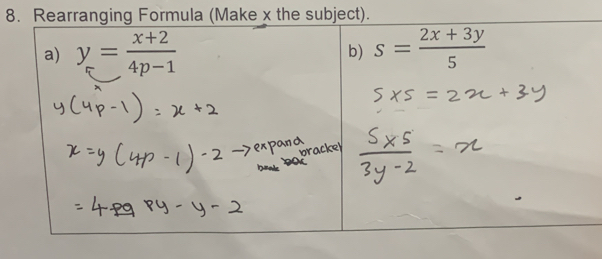 8. Rearranging Formula (Make x the subject).
a) y = (x+2)/(4p−1)
x
y(4p-1) = x+2
x = y(4p-1)-2 → expand bracket
= 4py - y - 2
b) S = (2x + 3y)/5
S×5 = 2x + 3y
(S×5)/(3y-2) = x